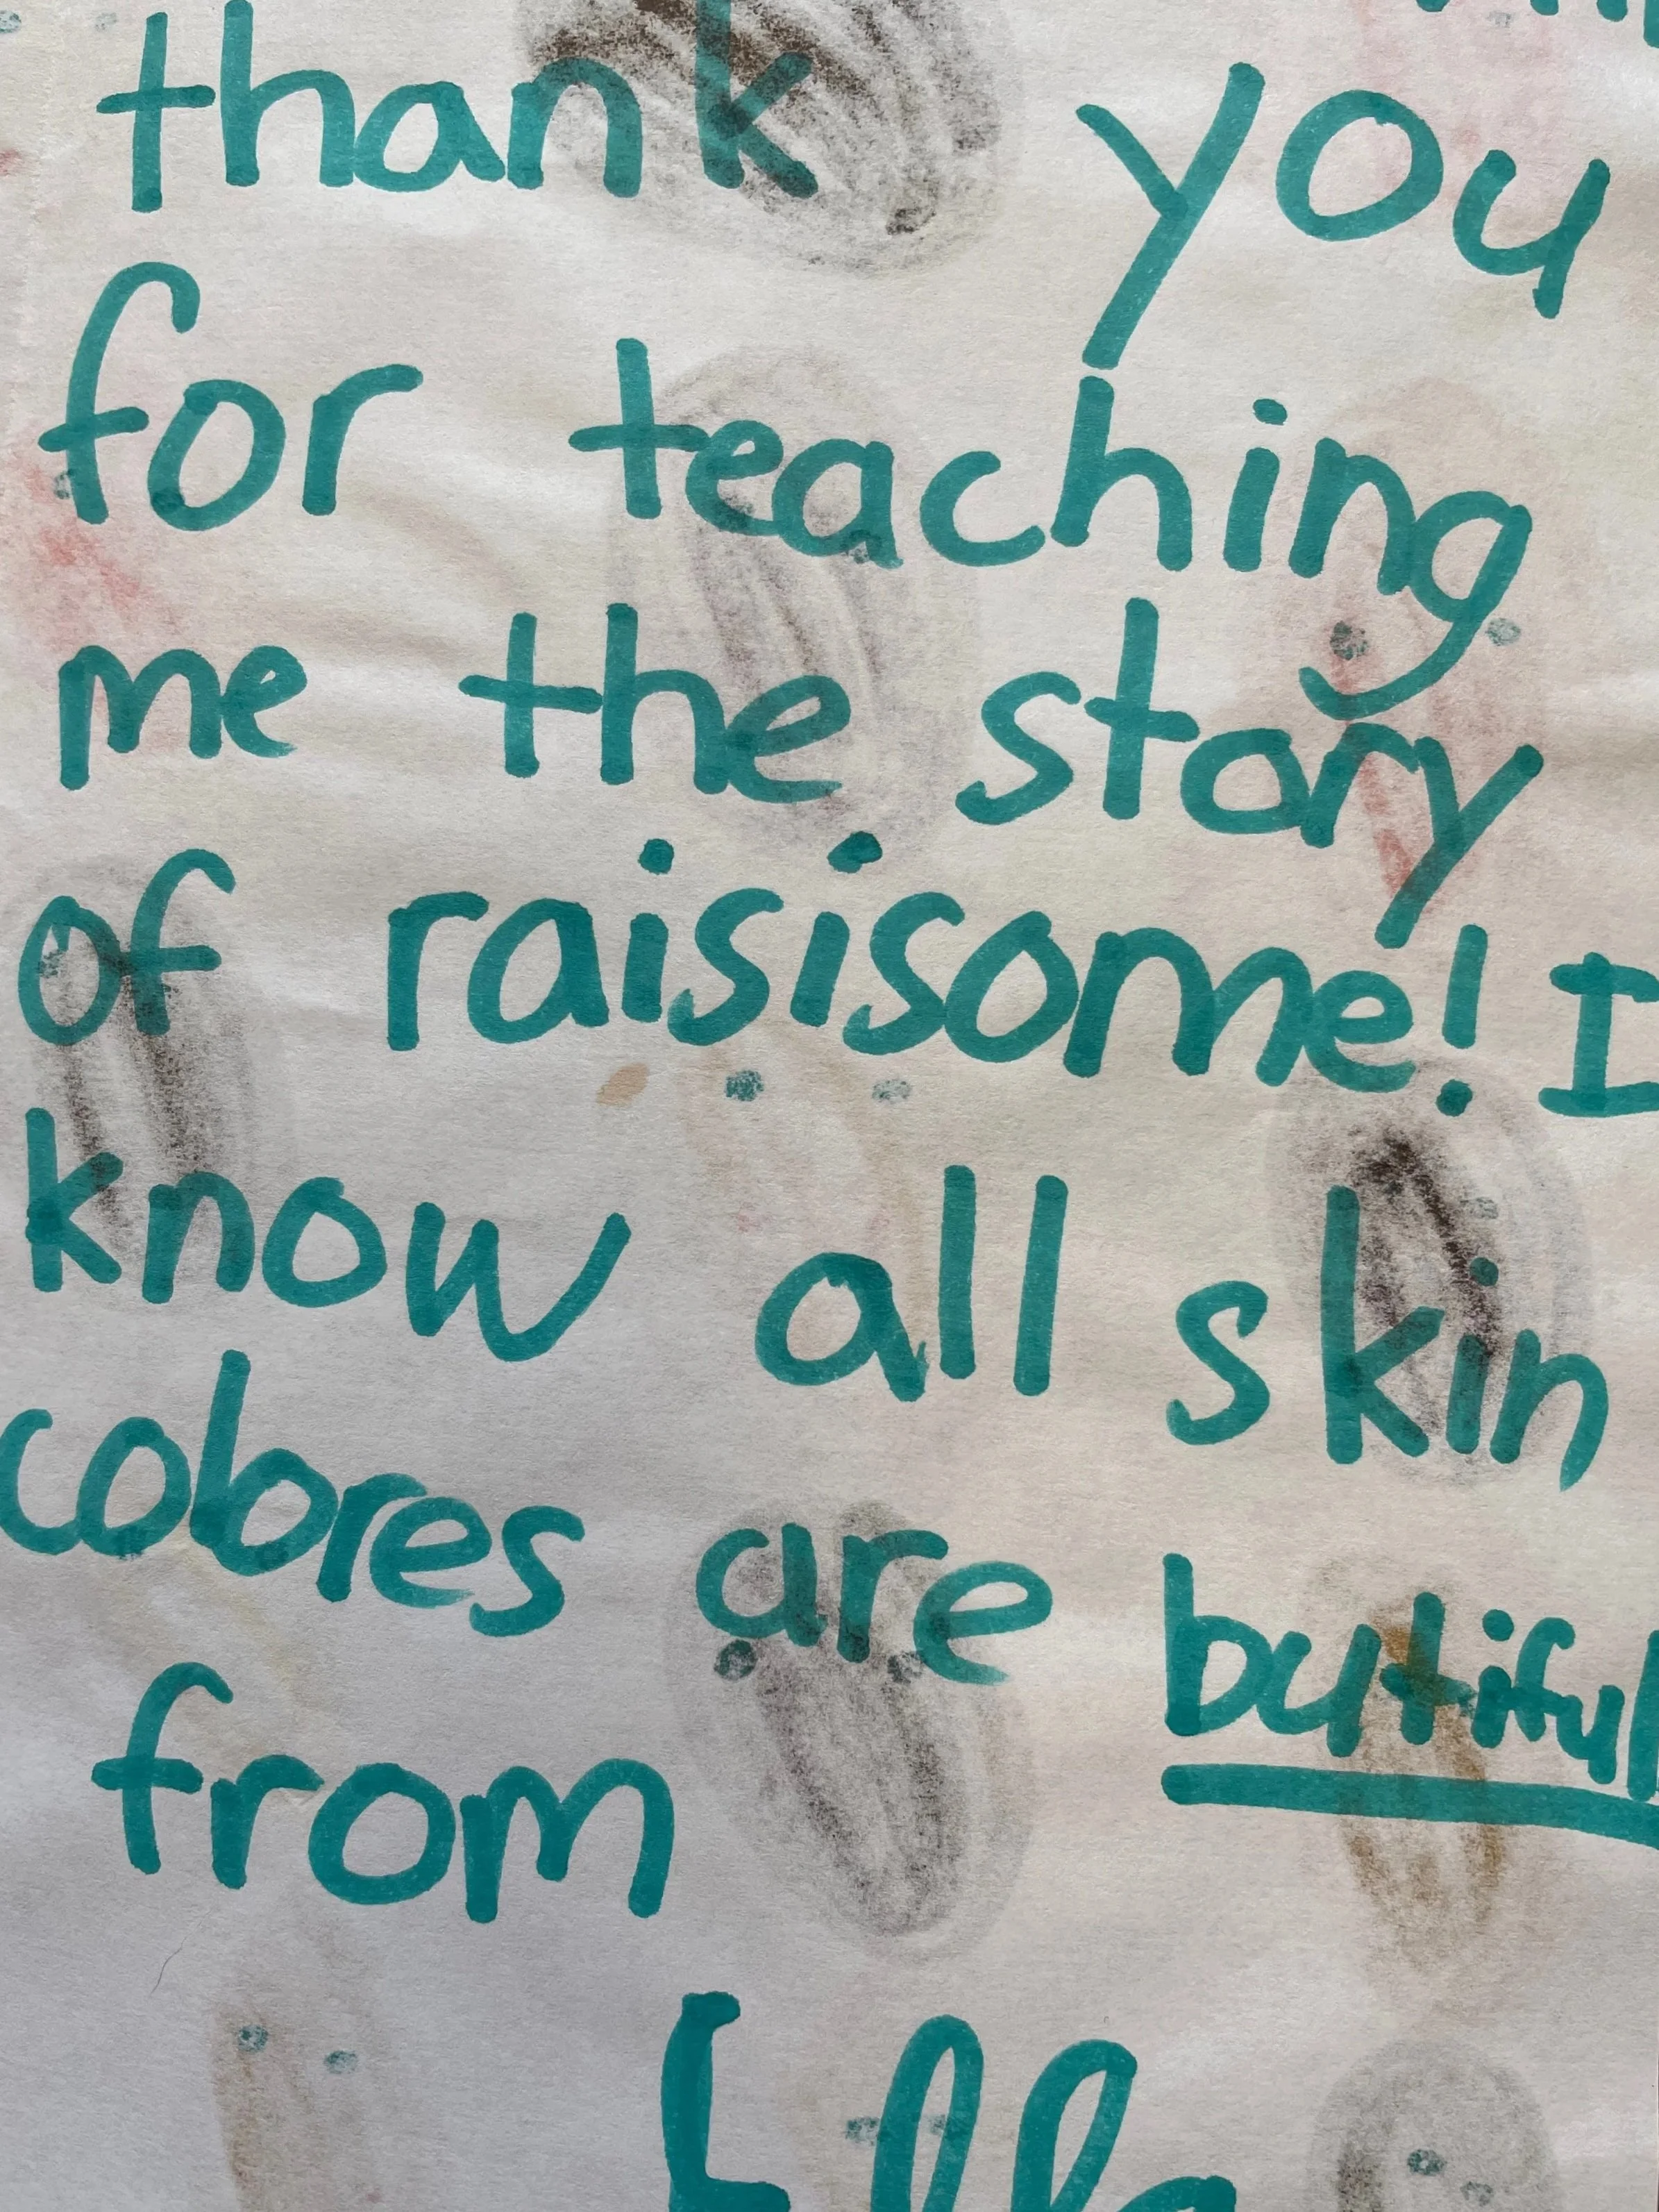 thank you
for teaching
me the story
of raisisome! I
know all skin
colores are butiful
from